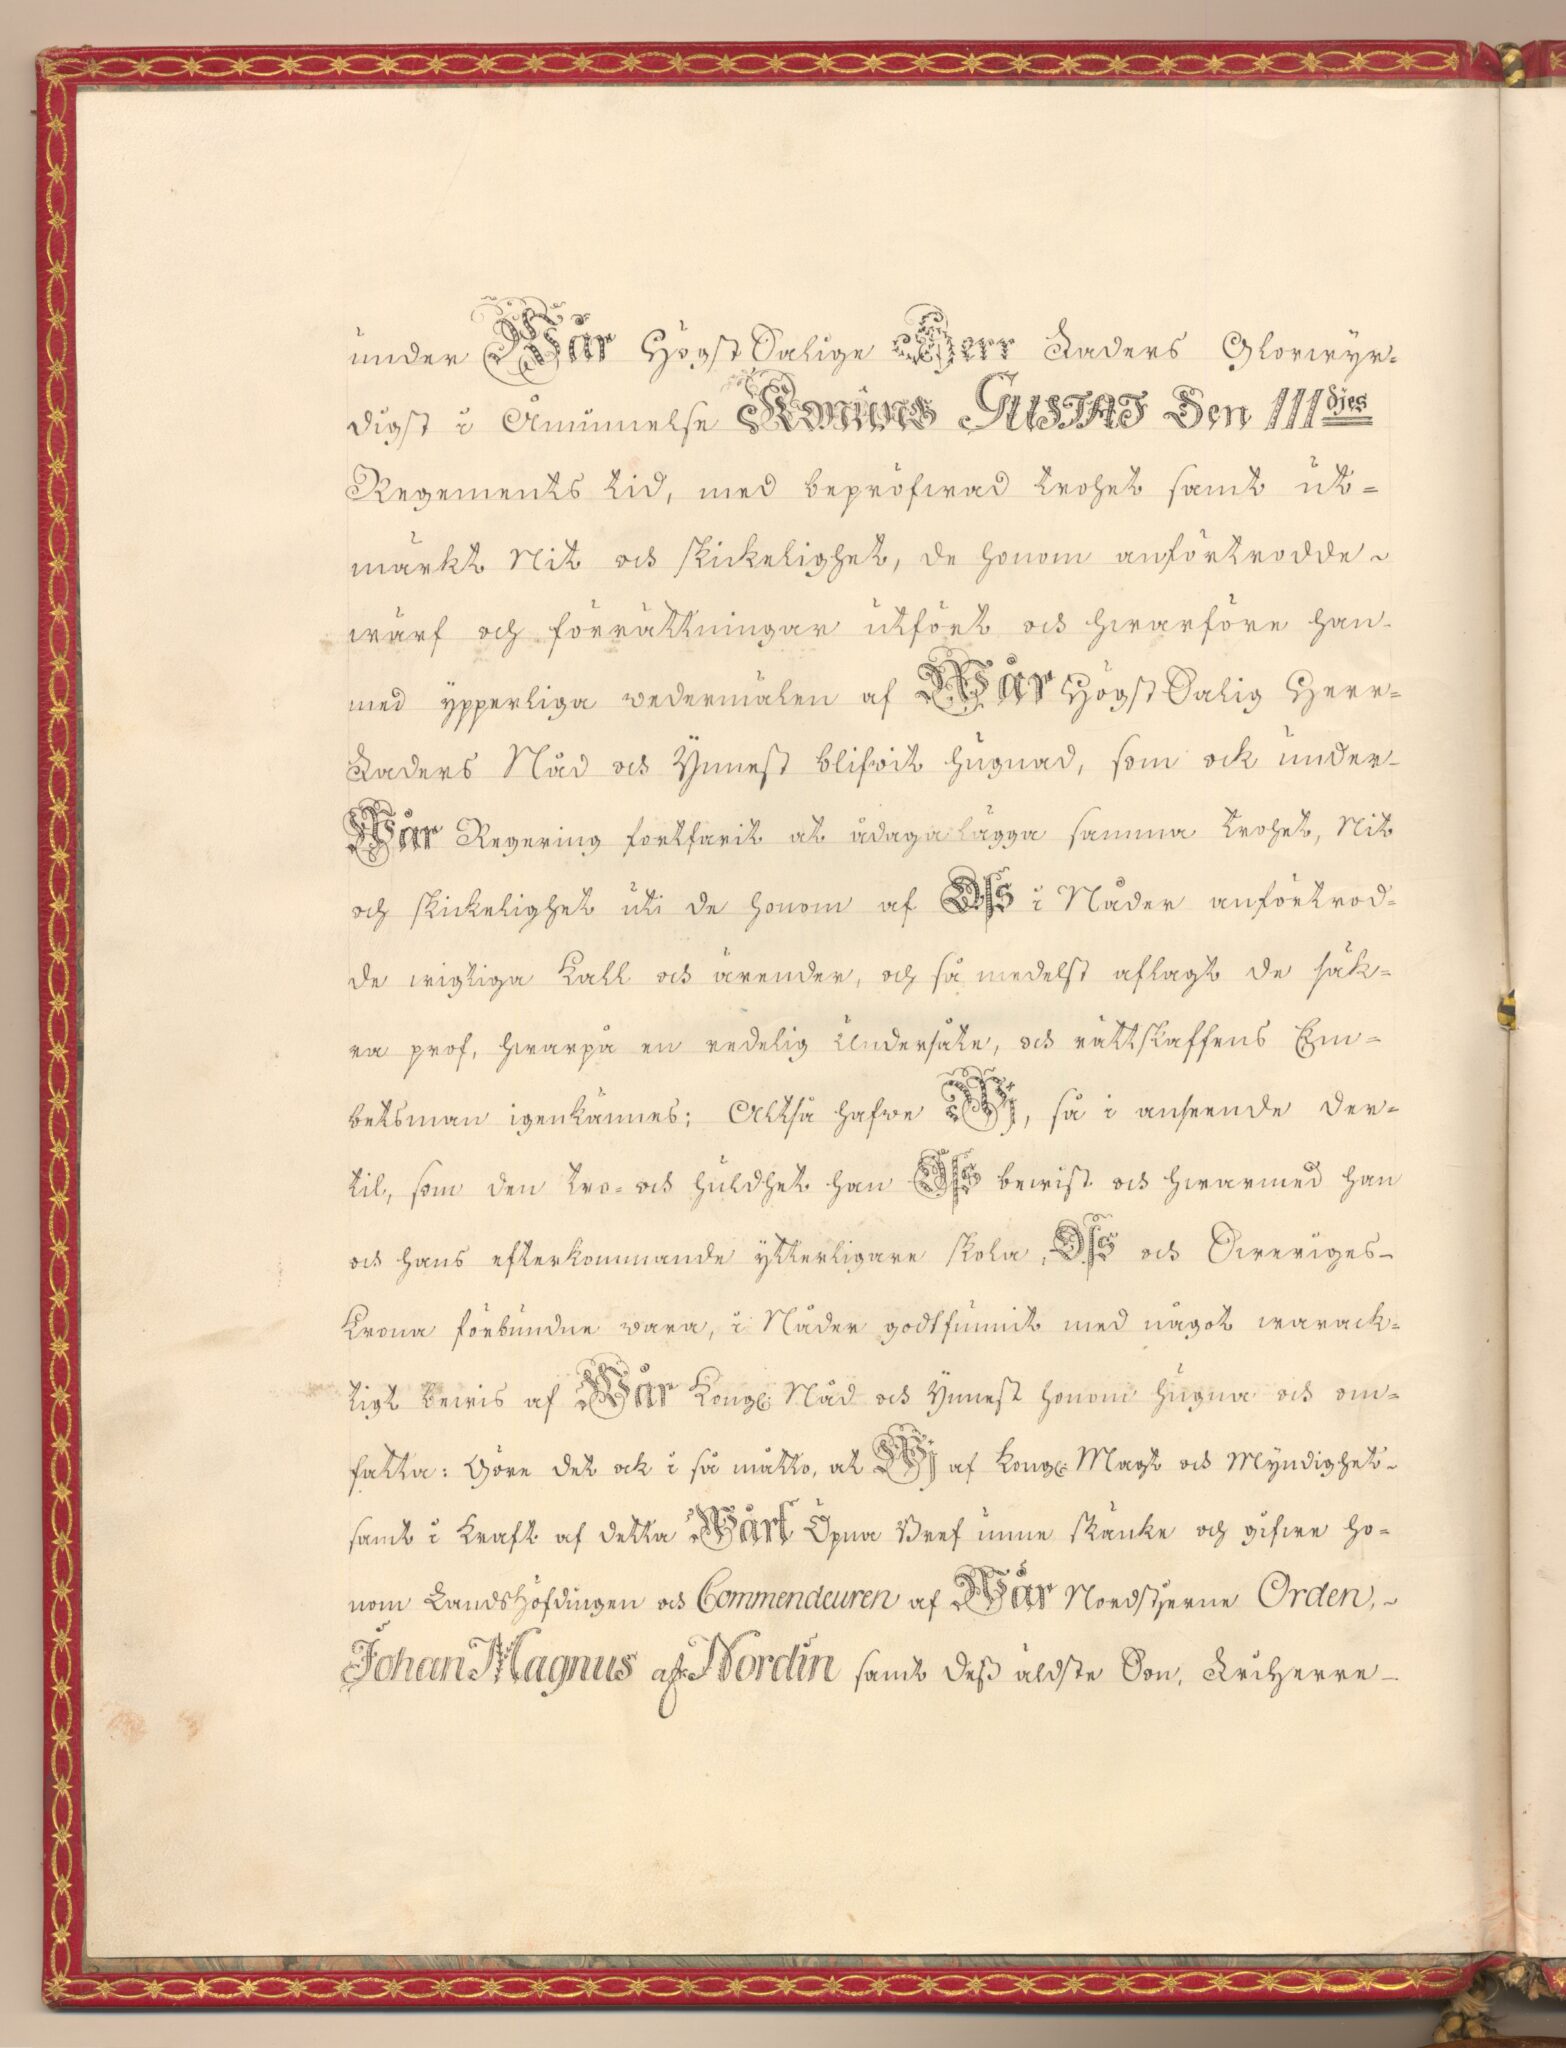 under Wår HögstSalige Herr Faders Glorwyr-
digst i Åminnelse Konung GUSTAF Den IIIdjes
Regements tid, med bepröfwad trohet samt ut-
märkt Nit och skickelighet, de honom anförtrodde
wärf och förrättningar utfört och hwarföre han
med ypperliga wedermälen af Wår HögstSalig Herr
Faders Nåd och Ynnest blifwit hugnad, som ock under
Wår Regering fortfarit at ådagalägga samma trohet, Nit
och skickelighet uti de honom af Oss i Nåder anförtrod-
de wigtiga Kall och ärender, och så medelst aflagt de säk-
ra prof, hwarpå en redelig Undersåte, och rättskaffens Em-
betsman igenkännes; Altså hafwe Wj, så i anseende der-
til, som den tro- och huldhet han Oss bewist och hwarmed han
och hans efterkommande ytterligare skola Oss och Sweriges
Krona förbundne wara, i Nåder godtfunnit med något warack-
tigt bewis af Wår Kongl. Nåd och Ynnest honom hugna och om-
fatta: Göre det ock i så matto, at Wj af Kongl. Magt och Myndighet
samt i Kraft af detta Wårt Öpna Bref unne skänke och gifwe ho-
nom Landshöfdingen och Commendeuren af Wår Nordstjerne Orden,
Johan Magnus af Nordin samt dess äldste Son, FriHerre